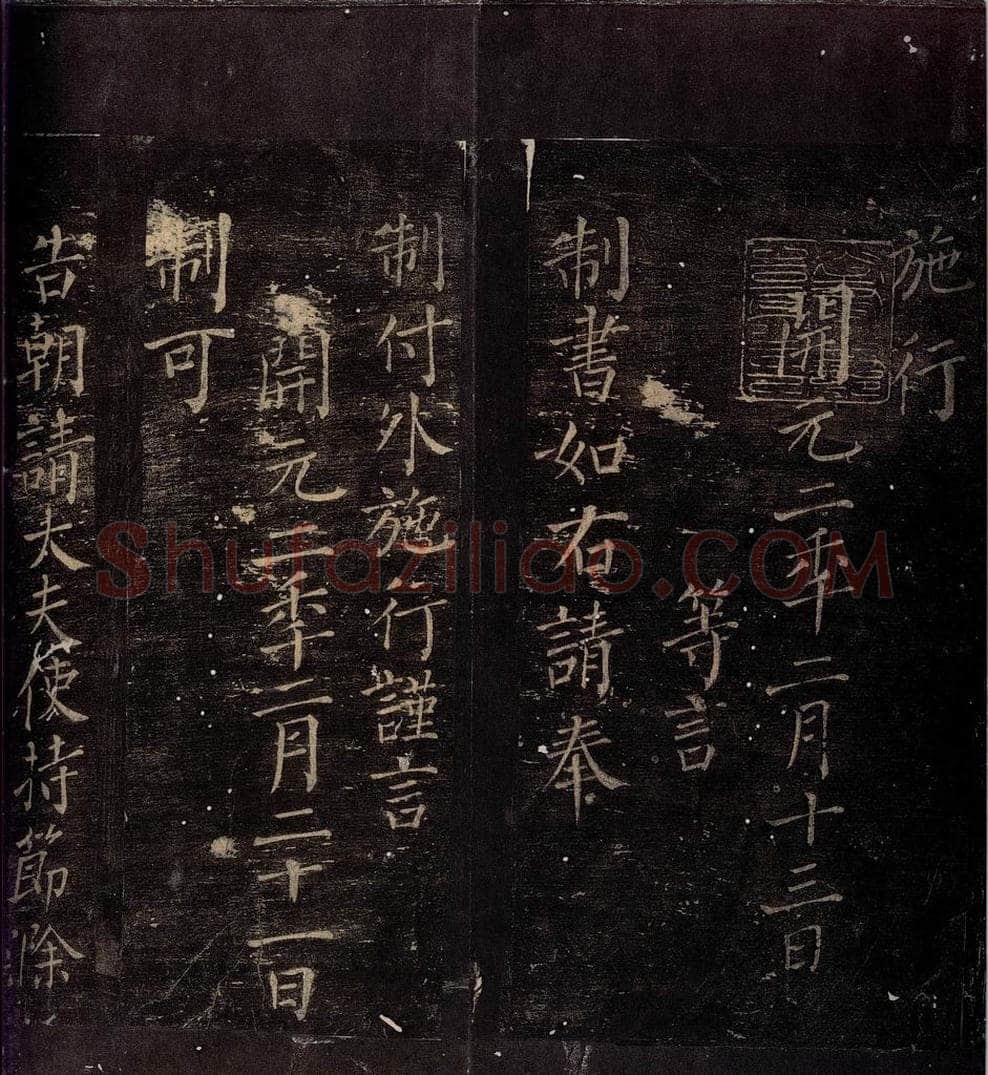 施行
開元二年二月十三日
等言
制書如右請奉
制付外施行謹言
開元二年二月二十一日
制可
告朝請大夫使持節滁
Shufazidian.COM